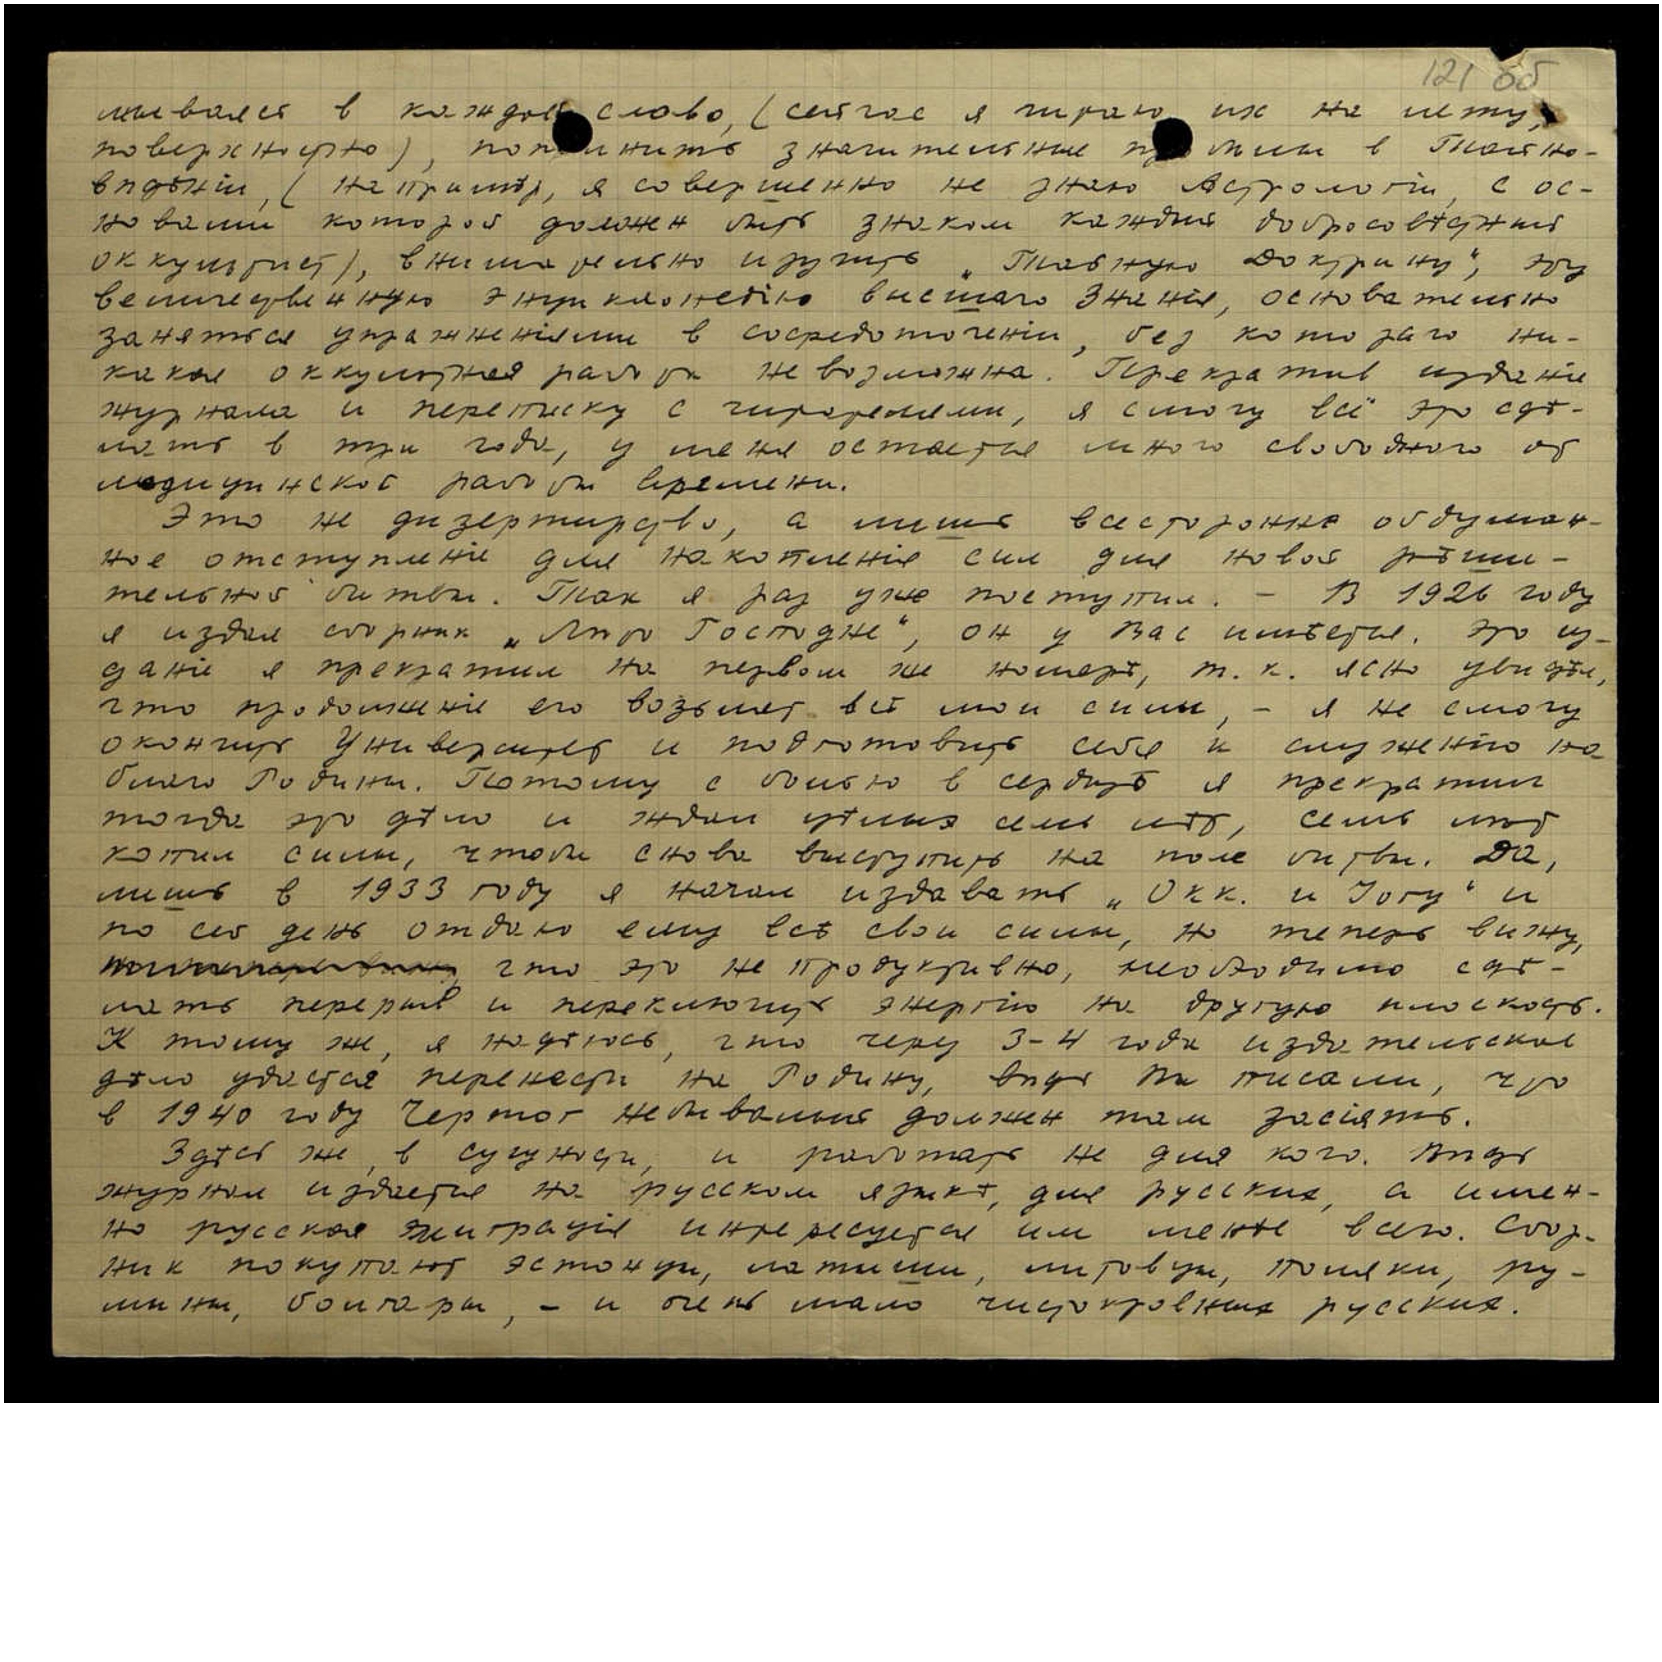 121 об
мываясь в каждое слово, (сейчас я читаю их на лету,
поверхностно), пополнить значительные пробѣлы в Тайно-
вѣдѣніи, (напримѣр, я совершенно не знаю Астрологіи, с ос-
новами которой должен быть знаком каждый добросовѣстный
оккультист), внимательно изучить „Тайную Доктрину", эту
величественную энциклопедію высшаго Знанія, основательно
заняться упражненіями в сосредоточеніи, без котораго ни-
какая оккультная работа невозможна. Прекратив изданіе
журнала и переписку с читателями, я смогу всё это сдѣ-
лать в три года, у меня остается много свободного от
медицинской работы времени.
Это не дизертирство, а лишь всесторонне обдуман-
ное отступленіе для накопленія сил для новой рѣши-
тельной битвы. Так я раз уже поступил. – В 1926 году
я издал сборник „Лѣто Господне", он у Вас имѣется. Это из-
даніе я прекратил на первом же номерѣ, т. к. ясно увидѣл,
что продолженіе его возьмет всѣ мои силы, – я не смогу
окончить Университет и подготовить себя к служенію на
благо Родины. Потому с болью в сердцѣ я прекратил
тогда это дѣло и ждал цѣлых семь лѣт, семь лѣт
копил силы, чтобы снова выступить на поле битвы. Да,
лишь в 1933 году я начал издавать „Окк. и Іогу" и
по сей день отдаю ему всѣ свои силы, но теперь вижу,
что это не продуктивно, необходимо сдѣ-
лать перерыв и переключить энергію на другую плоскость.
К тому же, я надѣюсь, что через 3-4 года издательское
дѣло удастся перенести на Родину, вѣдь Вы писали, что
в 1940 году Чертог небывалый должен там засіять.
Здѣсь же, в сущности, и работать не для кого. Вѣдь
журнал издается на русском языкѣ, для русских, а имен-
но русская эмиграція интересуется им менѣе всего. Сбор-
ник покупают эстонцы, латыши, литовцы, поляки, ру-
мыны, болгары, – и очень мало чистокровных русских.